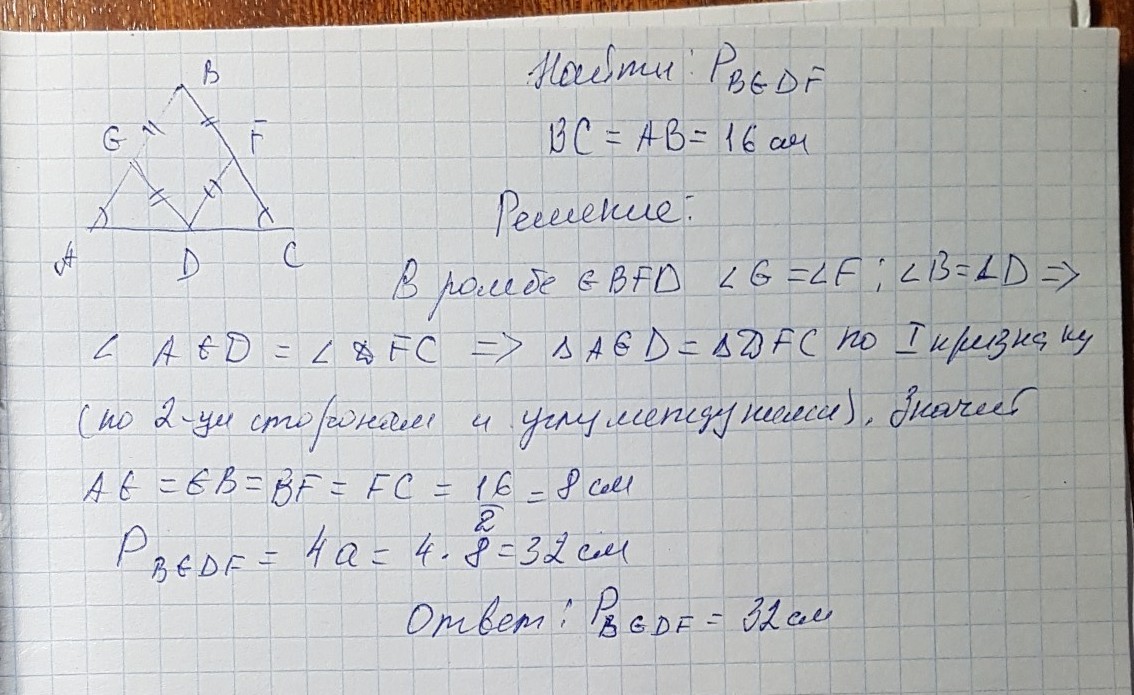 B
G
F
A
D
C
Найти: P BEDF
BC = AB = 16 см
Решение:
В ромбе EBFD ∠E = ∠F; ∠B = ∠D =>
∠ AED = ∠ DFC => △AED = △DFC по I признаку
(по 2-ум сторонам и углу между ними). Значит
AE = EB = BF = FC = 16/2 = 8 см
P BEDF = 4a = 4 · 8 = 32 см
Ответ: P BEDF = 32 см